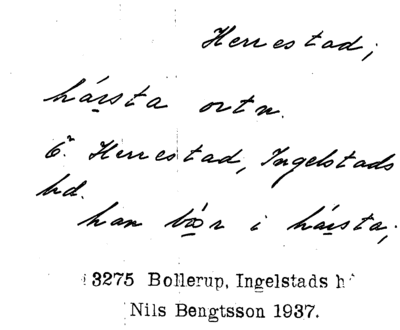 Herrestad;
hársta ortn.
Ö. Herrestad, Ingelstads
hd.
han bor i hársta;
3275 Bollerup, Ingelstads h
Nils Bengtsson 1937.